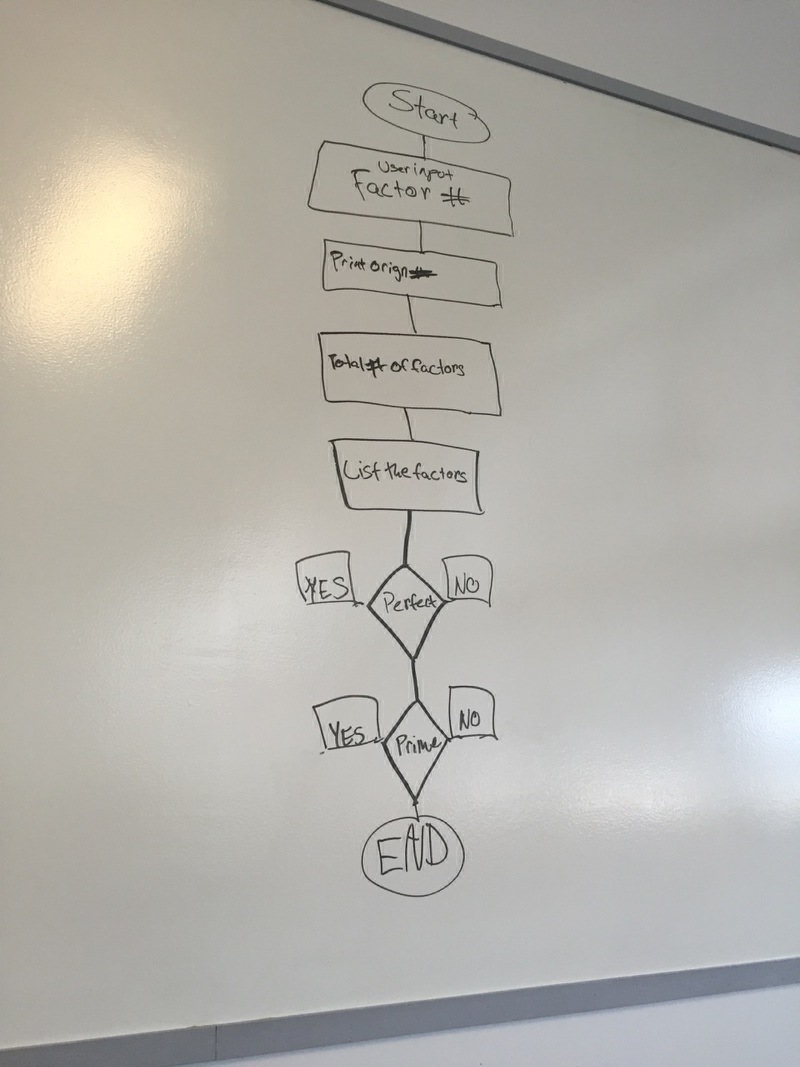 Start
User input
Factor #
Print orign #
Total # of factors
List the factors
YES
Perfect
NO
YES
Prime
NO
END